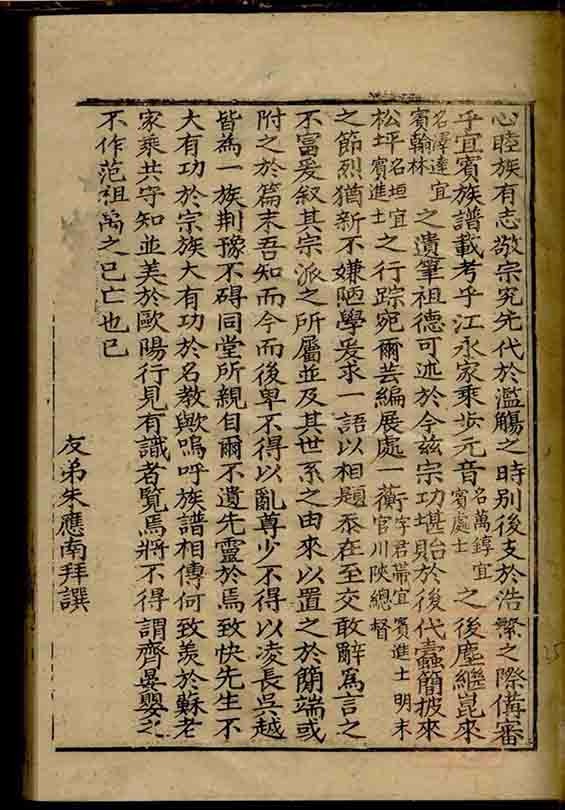 心睦族有志敬宗究先代於濫觴之時别後支於浩繁之際備審
乎宜賓族譜載考乎江永家乘步元音名萬錞宜賓處士之後塵繼崑來
名澤達宜賓翰林之遺筆祖德可述於今兹宗功堪貽於後代蠹簡披來
松坪名垣宜賓進士之行踪宛爾芸編展處一蘅行字君帶宜賓進士明末官川陝總督
之節烈猶新不嫌陋學爰求一語以相題忝在至交敢辭爲言之
不富爰叙其宗派之所屬並及其世系之由來以置之於簡端或
附之於篇末吾知而今而後卑不得以亂尊少不得以凌長吳越
皆為一族荆豫不碍同堂所親自爾不遺先靈於焉致快先生不
大有功於宗族大有功於名教歟嗚呼族譜相傳何致羨於蘇老
家乘共守知並美於歐陽行見有識者覧焉將不得謂齊晏嬰之
不作范祖禹之已亡也已
友弟朱應南拜譔